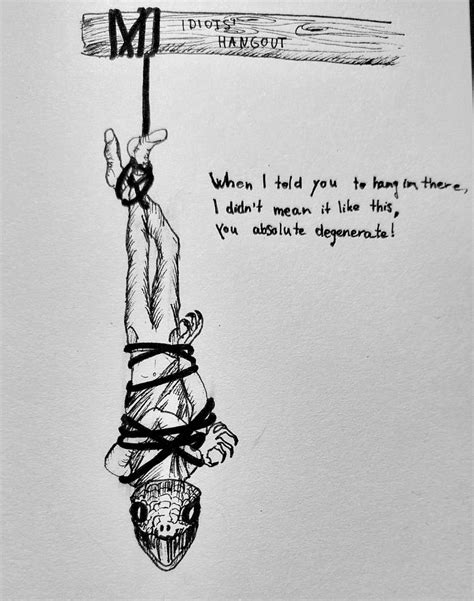 IDIOTS'
HANGOUT
When I told you to hang in there,
I didn't mean it like this,
You absolute degenerate!